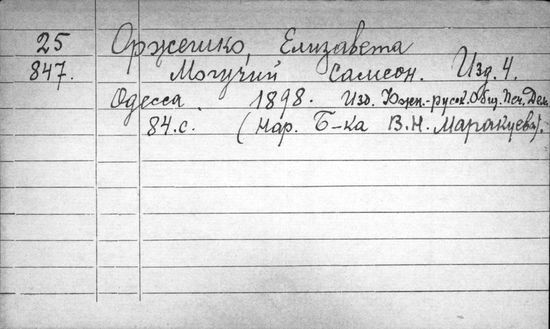 25 Оржешко, Елизавета
847. Могучий Самсон. Изд. 4.
Одесса. 1898. Изд. Южн.-русск. Общ. Печ. Дела
84.с. (Нар. Б-ка В.Н. Маракуева).